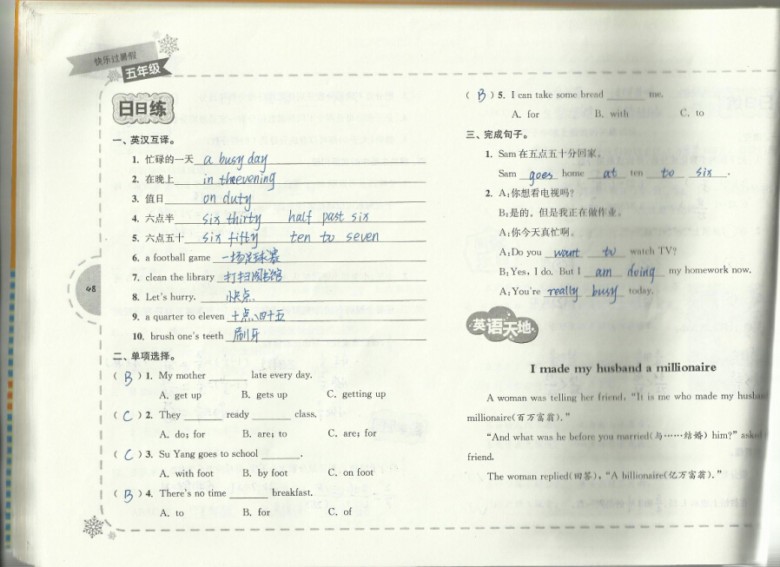 快乐过暑假
五年级
日日练
一、英汉互译。
1. 忙碌的一天 a busy day
2. 在晚上 in the evening
3. 值日 on duty
4. 六点半 six thirty half past six
5. 六点五十 six fifty ten to seven
6. a football game 一场足球赛
7. clean the library 打扫图书馆
8. Let's hurry. 快点.
9. a quarter to eleven 十点四十五
10. brush one's teeth 刷牙
二、单项选择。
( B ) 1. My mother ______ late every day.
A. get up B. gets up C. getting up
( C ) 2. They ______ ready ______ class.
A. do; for B. are; to C. are; for
( C ) 3. Su Yang goes to school ______.
A. with foot B. by foot C. on foot
( B ) 4. There's no time ______ breakfast.
A. to B. for C. of
48
( B ) 5. I can take some bread ______ me.
A. for B. with C. to
三、完成句子。
1. Sam 在五点五十分回家。
Sam goes home at ten to six.
2. A:你想看电视吗?
B:是的。但是我正在做作业。
A:你今天真忙啊。
A:Do you want to watch TV?
B:Yes, I do. But I am doing my homework now.
A:You're really busy today.
英语天地
I made my husband a millionaire
A woman was telling her friend, "It is me who made my
millionaire(百万富翁)."
"And what was he before you married(与……结婚) him?" asked
friend.
The woman replied(回答), "A billionaire(亿万富翁)."